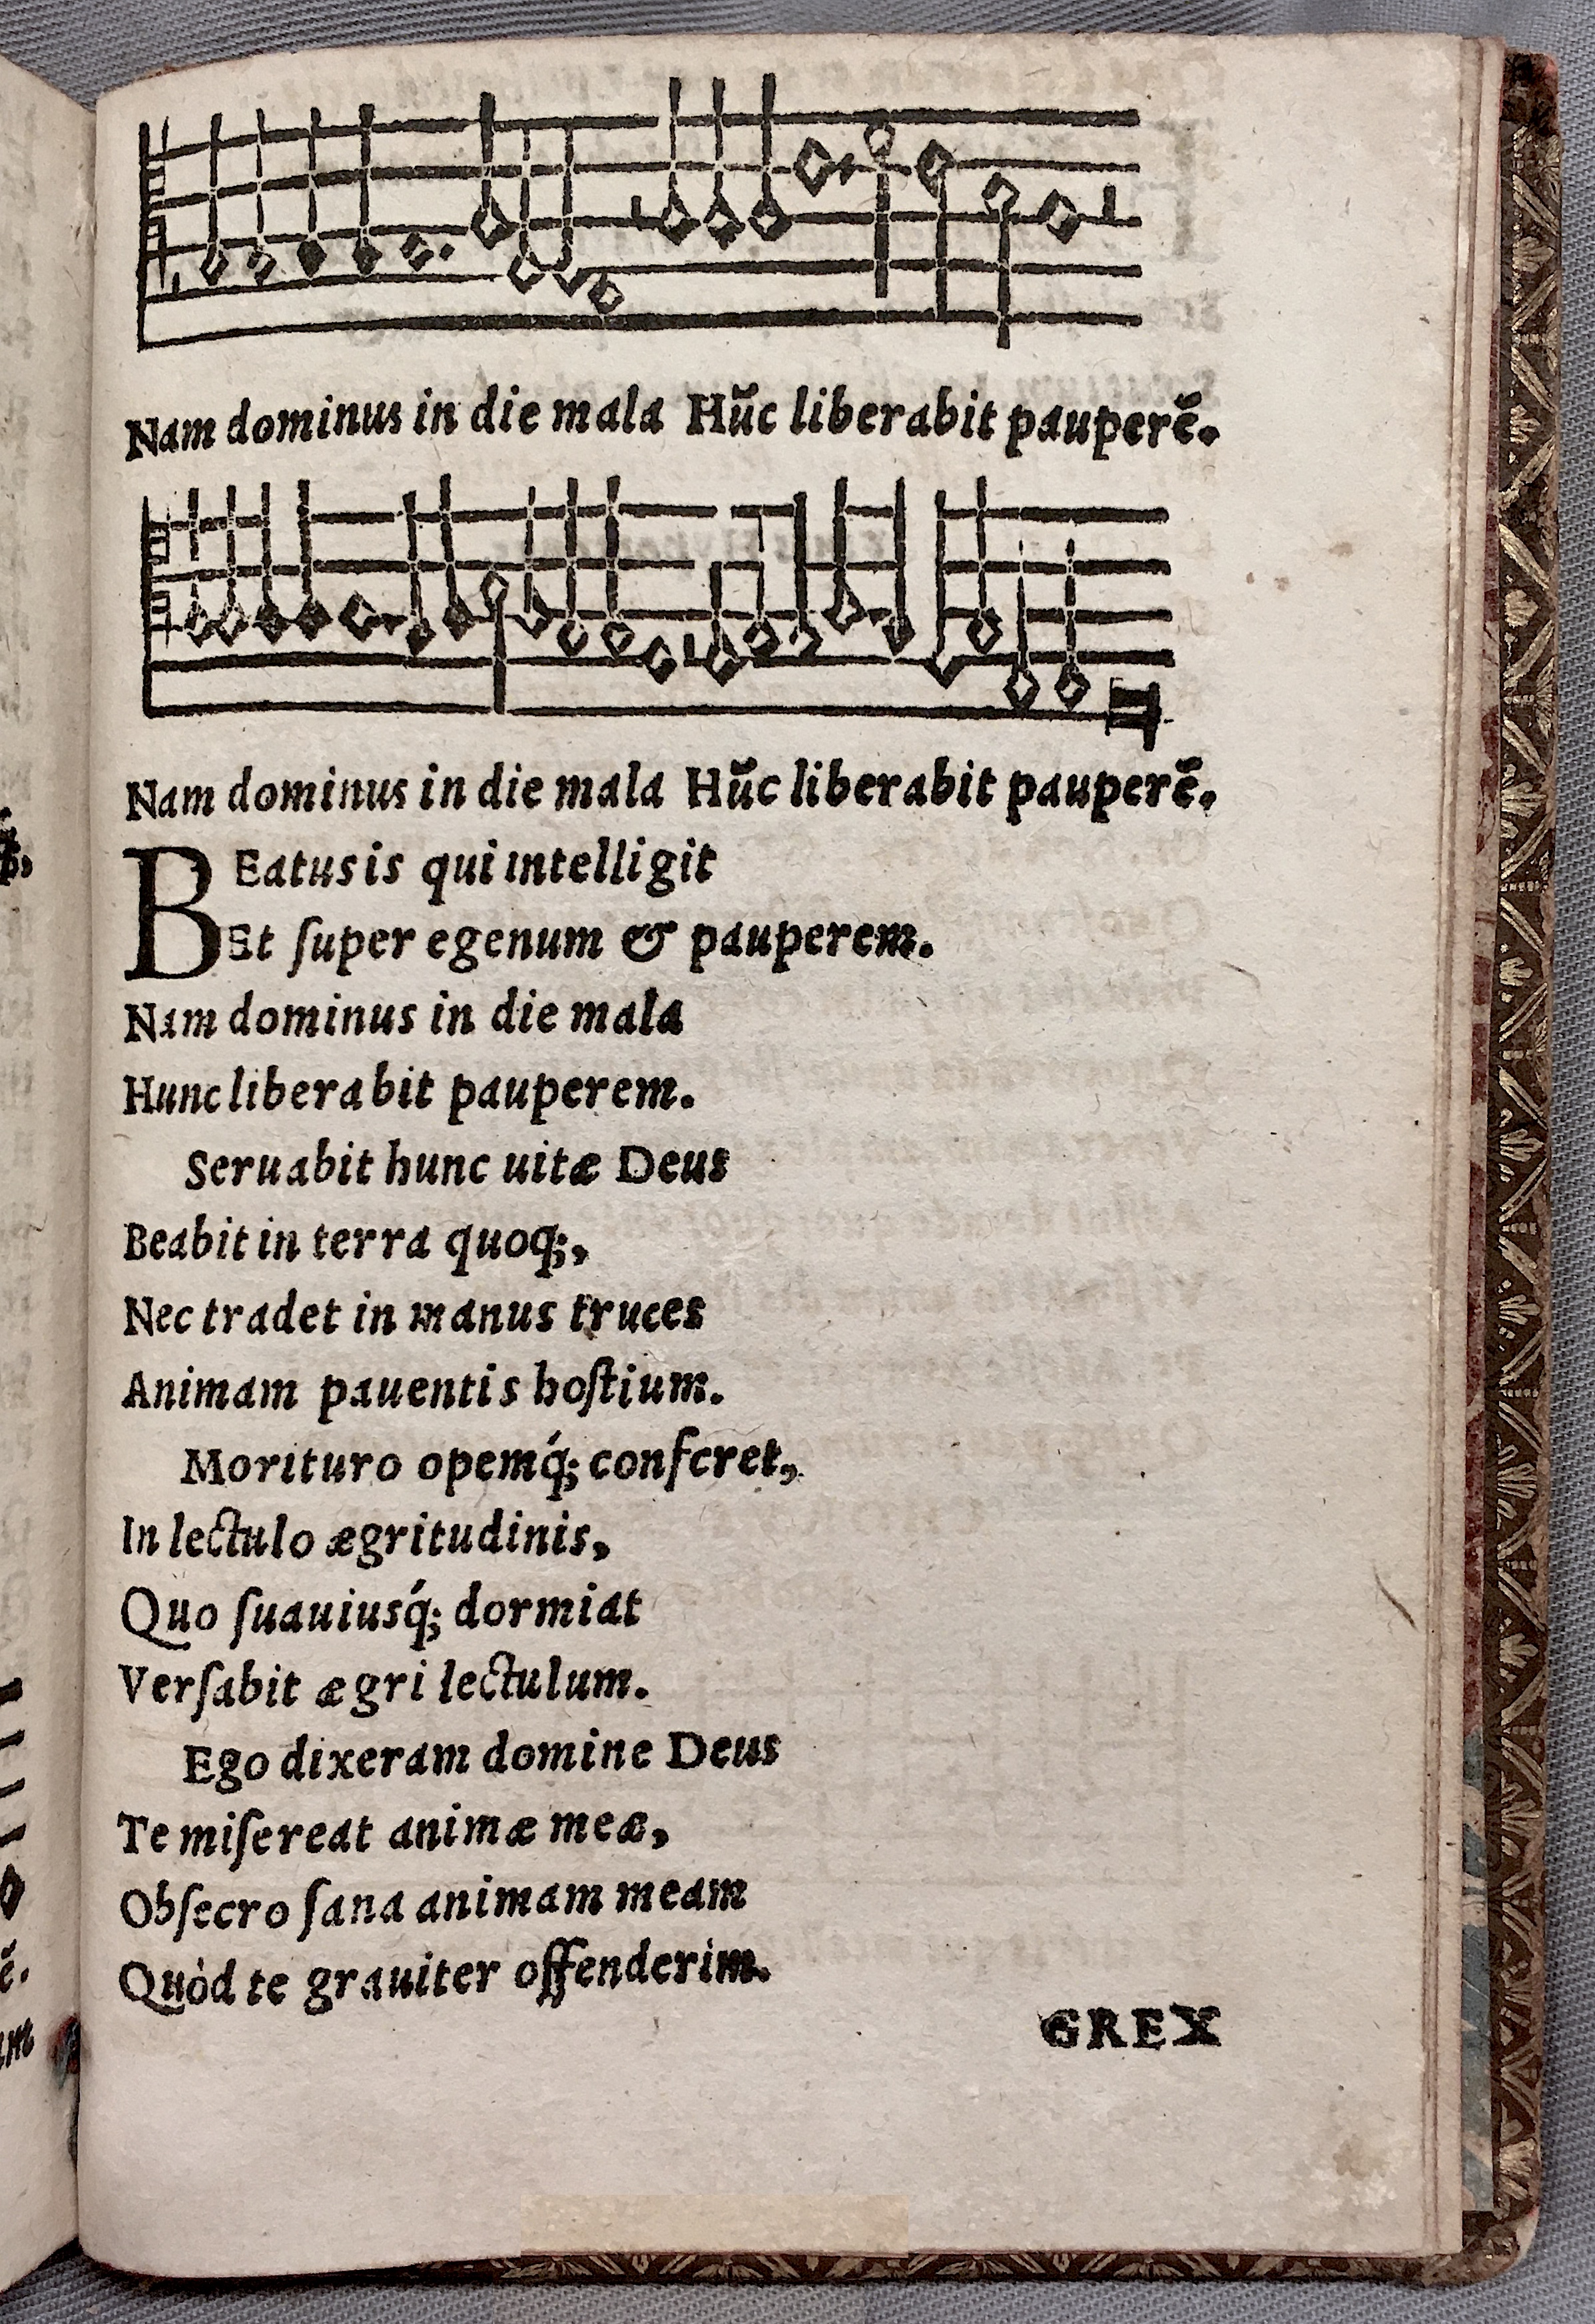 Nam dominus in die mala Hũc liberabit pauperẽ.
Nam dominus in die mala Hũc liberabit pauperẽ.
BEatus is qui intelligit
Et ſuper egenum & pauperem.
Nam dominus in die mala
Hunc liberabit pauperem.
Seruabit hunc uitæ Deus
Beabit in terra quoq;,
Nec tradet in manus truces
Animam pauentis hoſtium.
Morituro opemq́; conferet,
In lectulo ægritudinis,
Quo ſuauiusq́; dormiat
Verſabit ægri lectulum.
Ego dixeram domine Deus
Te miſereat animæ meæ,
Obſecro ſana animam meam
Quòd te grauiter offenderim.
GREX